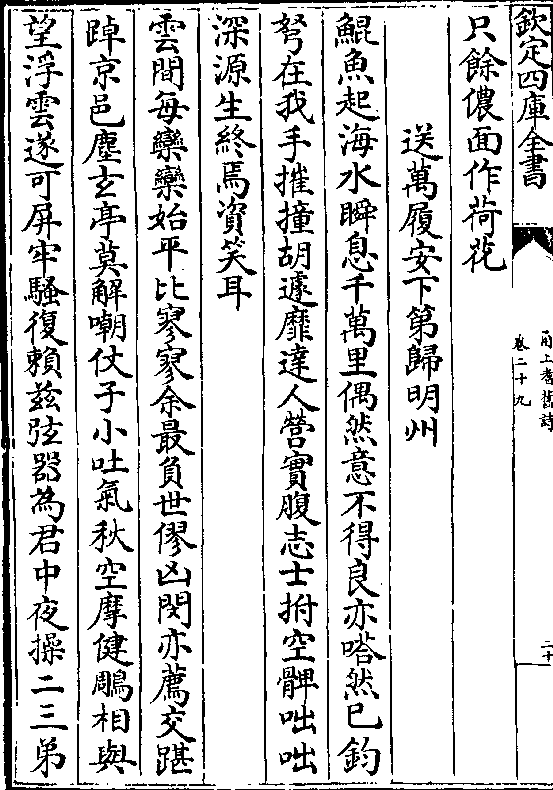 欽定四庫全書
甬上耆舊詩
卷二十九
二十
只餘儂面作荷花
送萬履安下第歸明州
鯤魚起海水瞬息千萬里偶然意不得良亦嗒然已鈞
弩在我手摧撞胡遽靡達人營實腹志士拊空髀咄咄
深源生終焉資笑耳
雲間每欒欒始平比寥寥余最負世僇凶閔亦薦交踸
踔京邑塵玄亭莫解嘲仗子小吐氣秋空摩健鵰相與
望浮雲遂可屏牢騷復賴茲弦器為君中夜操二三弟